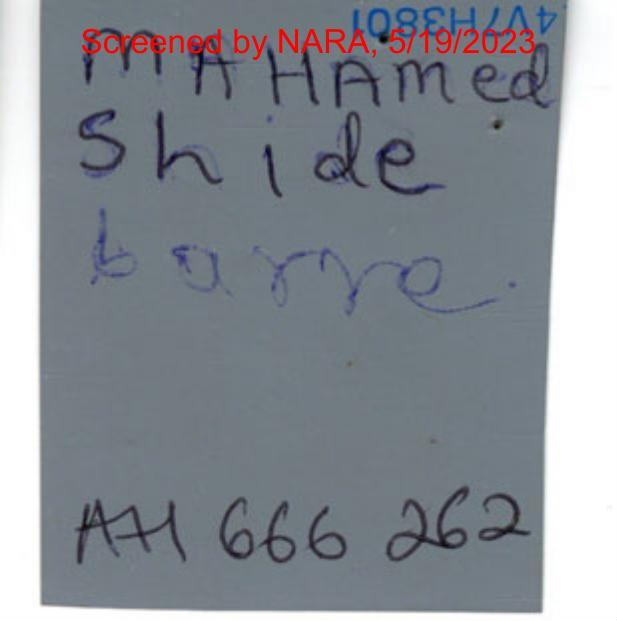 4V7H3801
Screened by NARA, 5/19/2023
MAHAMed
Shide
barre.
AH 666 262